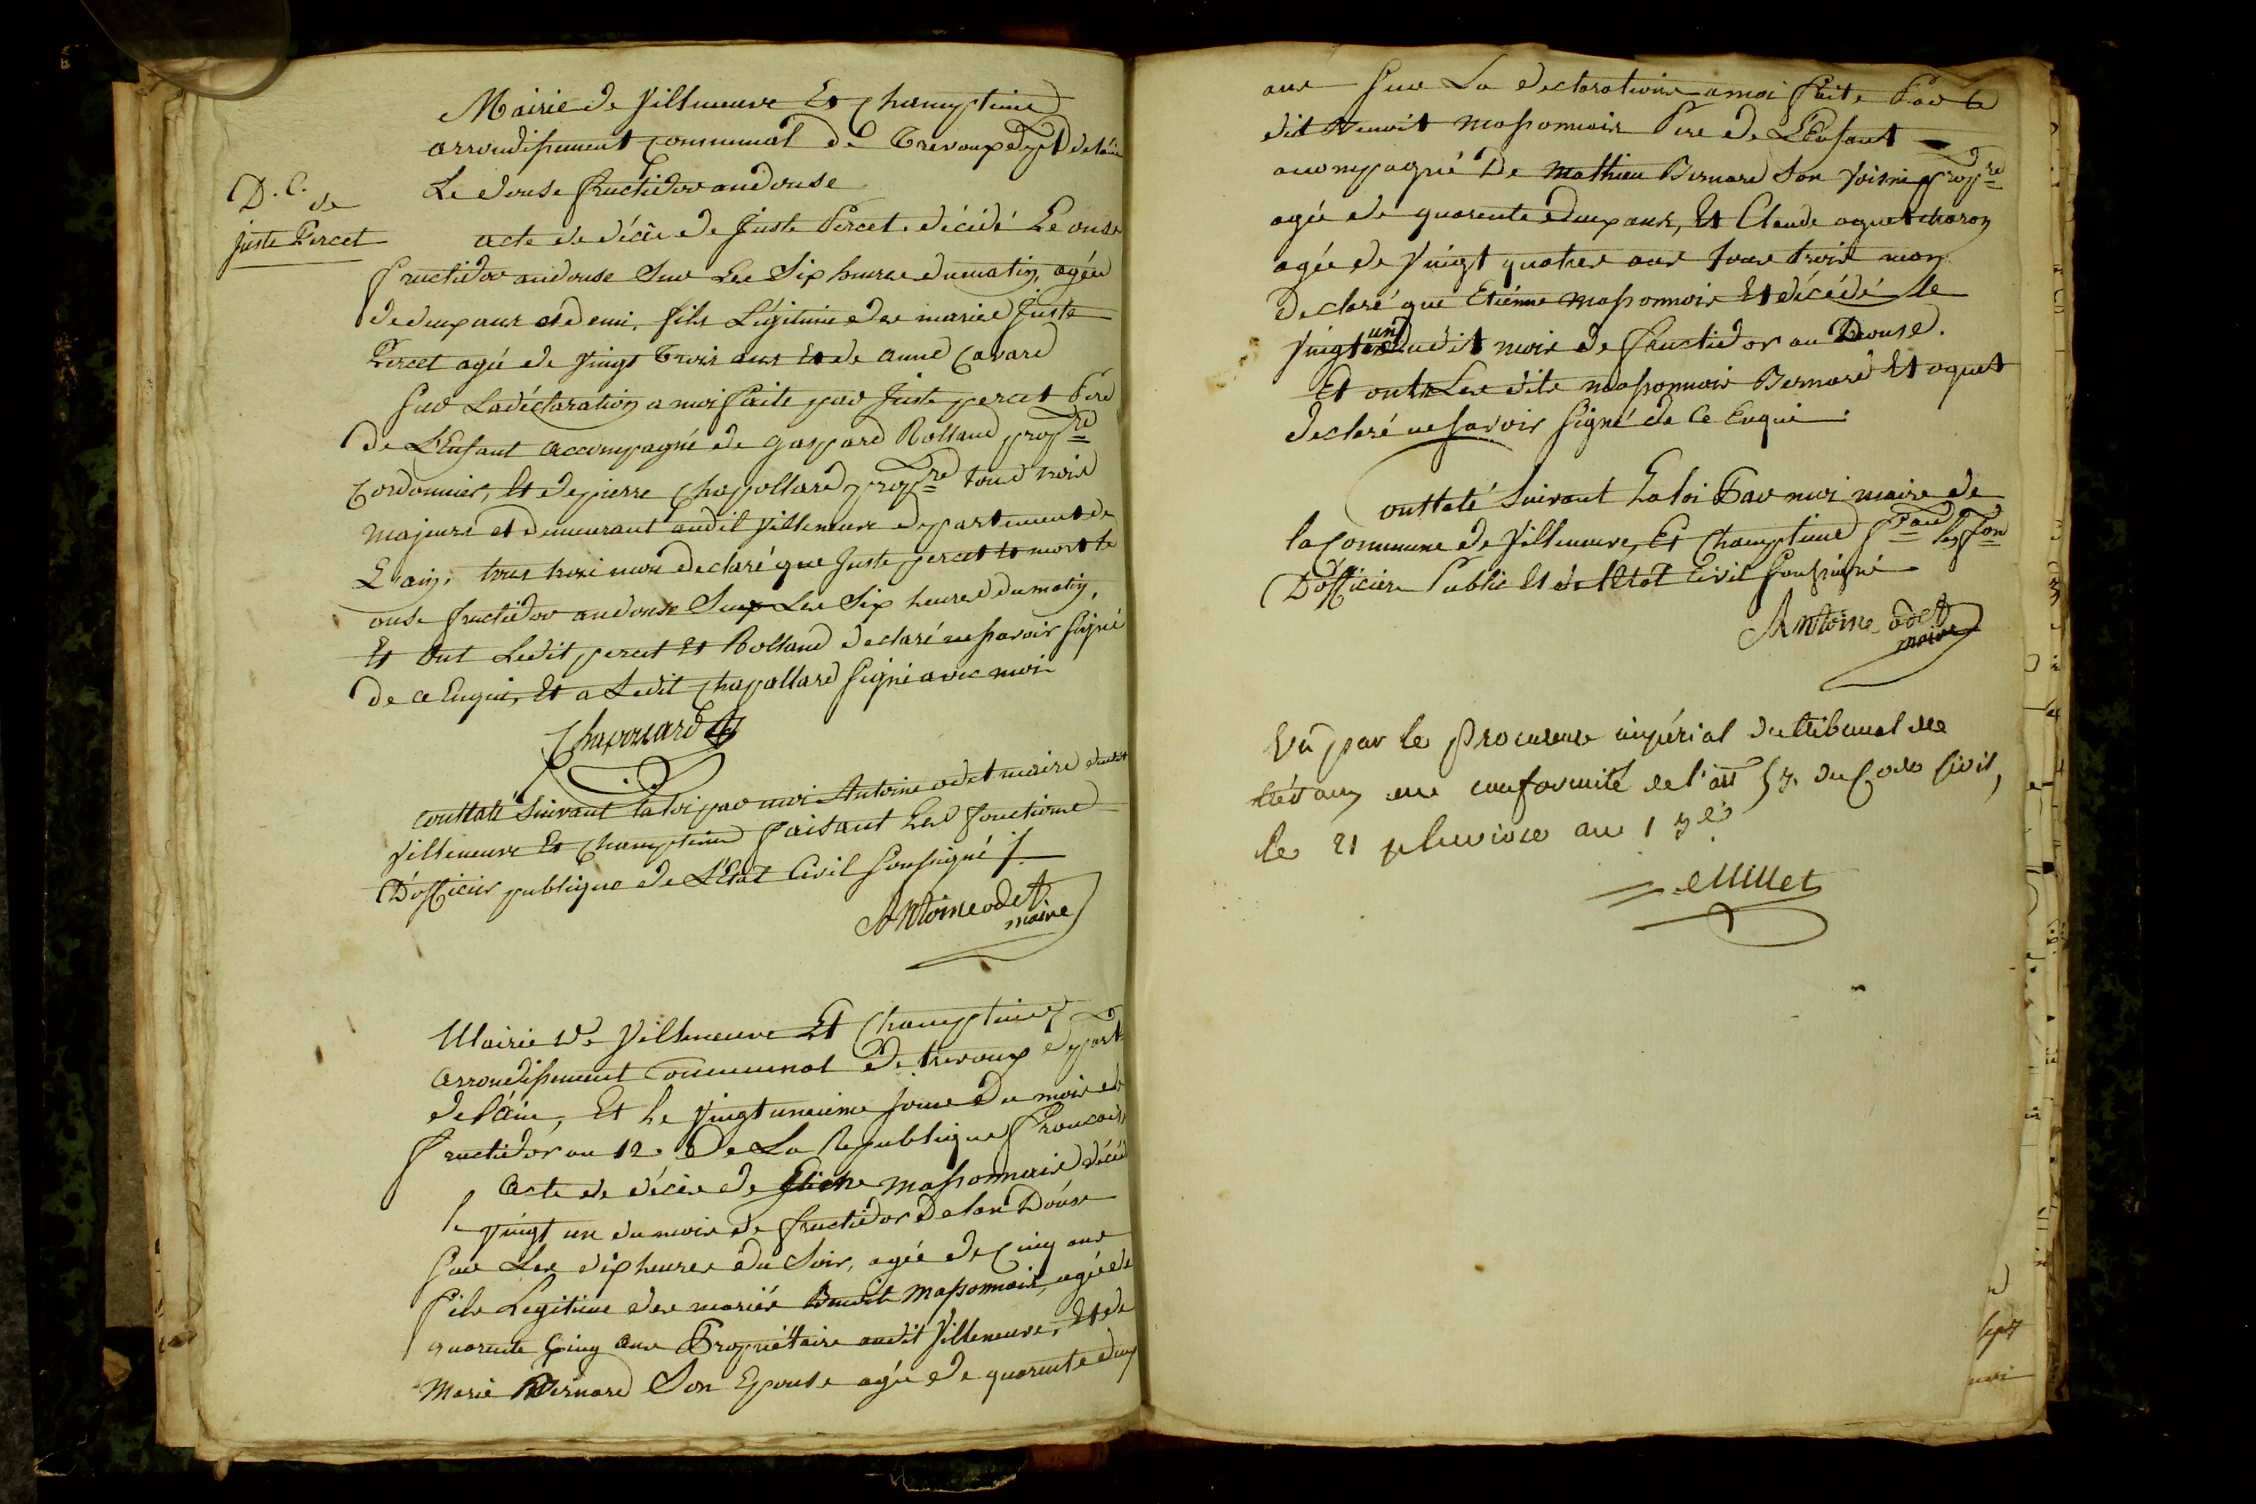 Mairie de Villeneuve Et Champteins
arrondissement Communal de Trevoux Dept de l'ain
Le douse fructidor an douse
D. C.
de
Juste Percet
acte de décès de Juste Percet décédé Le onse
fructidor an douse Sur Les Six heures du matin, agée
de deux ans et demi, fils Légitime des mariés Juste
Percet agé de Vingt trois ans Et de anne Cavard
sur La déclaration a moi faite par Juste percet Pere
de L'Enfant accompagné de gaspard Rolland propre
Cordonnier, Et de pierre Chapollard propre tous trois
majeurs et demeurant audit Villeneuve departement de
L'ain, tous trois mon declaré que Juste percet Et mort le
onse fructidor an douse Sur Les Six heures du matin,
Et Ont Ledit percet Et Rolland declaré ne savoir signé
de ce Enquis, Et a Ledit Chapollard signé avec moi
Chapouard
Conttaté Suivant la loi par moi Antoine odet maire dudit
Villeneuve Et Champteins faisant Les fonctions
D'officier publique de L'Etat Civil soussigné
Antoine odet
maire
Mairie de Villeneuve Et Champteins
arrondissement Communal de trevoux depart
de l'ain, Et Le Vingt uneime jour du mois de
fructidor an 12 De La Republique francais
Acte de décès de Etiene massonnois décéd
le Vingt un du mois de fructidor De lan Douse
sur Les dix heures du Soir, agée de Cinq ans
fils Legitime des mariés Benoit massonnois, agée de
quarente Cinq ans Propriétaire audit Villeneuve, Et de
Marie Bernard Son Epouse agée de quarente deux
ans sur La declarations a moi faite Par le
dit Benoit massonnois Pere de L'Enfant
acompagné De mathieu Bernard Son Voisin propre
agée de quarente deux ans, Et Claude oguet charon
agée de Vingt quatres ans tous trois mon
declaré que Etiénne massonnois Et décédé le
Vingt un dudit mois de fructidor an Douse.
Et ont Les dits massonnois Bernard Et oguet
declaré ne savoir signé de Ce Enqui
Conttaté Suivant La loi Par moi maire de
la Commune de Villeneuve, Et Champteins fsant les fon
D'officier Public Et de l'Etat Civil soussigné
Antoine odet
maire
Vu par le procureur impérial du tribunal de
trévoux en conformité de l'art 53. du Code Civil,
le 21 pluviose an 13e
Millet
sept